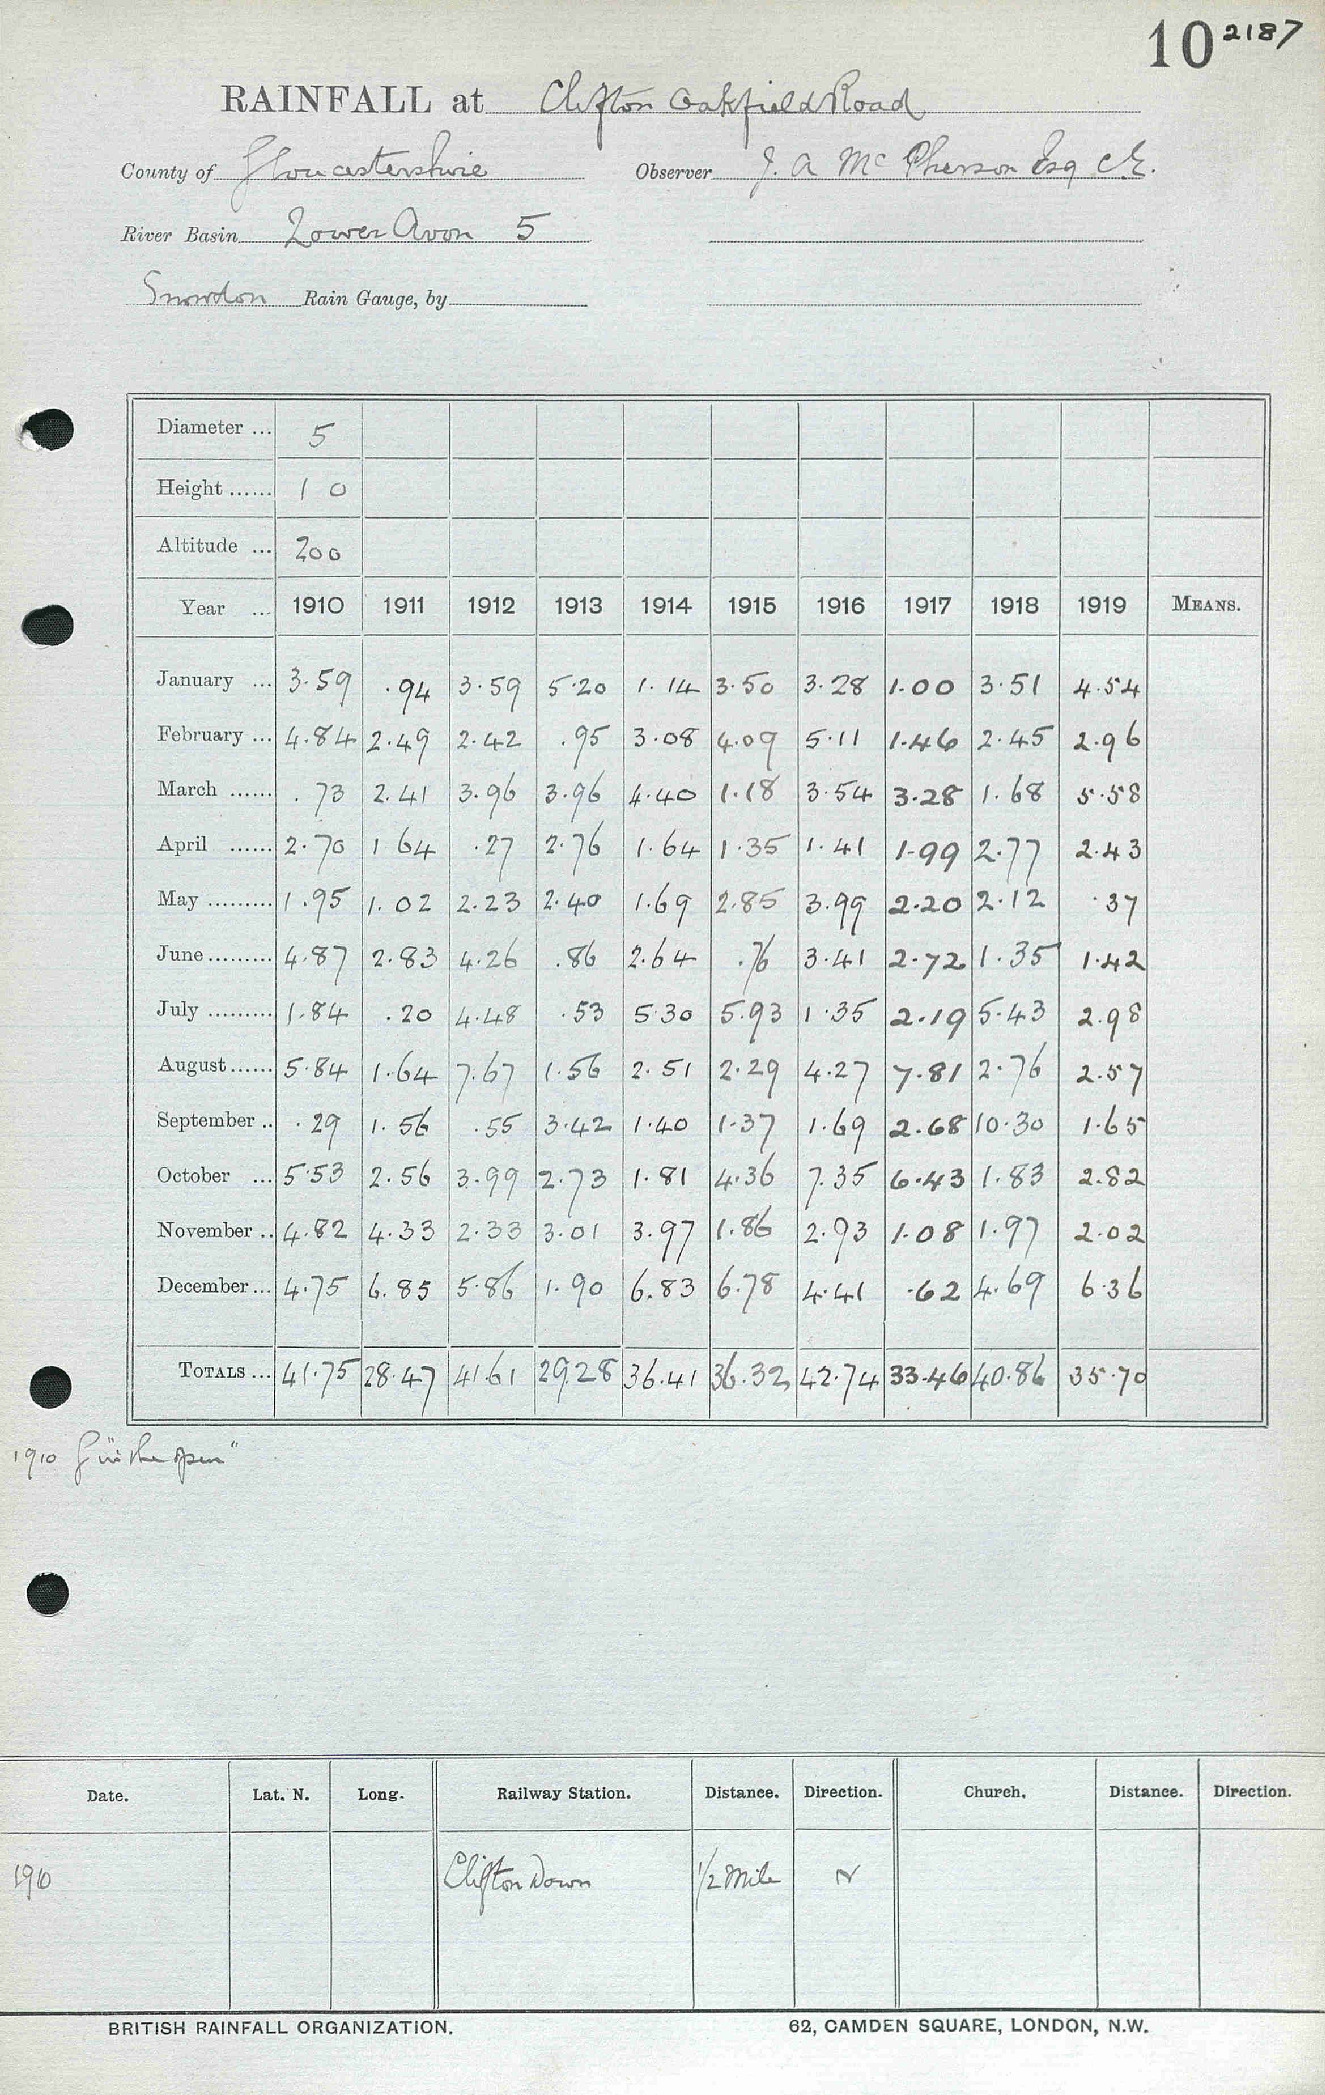 10 2187
RAINFALL at Clifton Oakfield Road
County of Gloucestershire Observer J. A. McPherson Esq C.E.
River Basin Lower Avon 5
Snowdon Rain Gauge, by
Diameter ... 5
Height ...... 10
Altitude ... 200
Year ... 1910 1911 1912 1913 1914 1915 1916 1917 1918 1919 MEANS.
January ... 3.59 .94 3.59 5.20 1.14 3.50 3.28 1.00 3.51 4.54
February ... 4.84 2.49 2.42 .95 3.08 4.09 5.11 1.46 2.45 2.96
March ...... .73 2.41 3.96 3.96 4.40 1.18 3.54 3.28 1.68 5.58
April ...... 2.70 1 64 .27 2.76 1.64 1.35 1.41 1.99 2.77 2.43
May ......... 1.95 1.02 2.23 2.40 1.69 2.85 3.99 2.20 2.12 .37
June ......... 4.87 2.83 4.26 .86 2.64 .76 3.41 2.72 1.35 1.42
July ......... 1.84 .20 4.48 .53 5.30 5.93 1.35 2.19 5.43 2.98
August ...... 5.84 1.64 7.67 1.56 2.51 2.29 4.27 7.81 2.76 2.57
September .. .29 1.56 .55 3.42 1.40 1.37 1.69 2.68 10.30 1.65
October ... 5.53 2.56 3.99 2.73 1.81 4.36 7.35 6.43 1.83 2.82
November .. 4.82 4.33 2.33 3.01 3.97 1.86 2.93 1.08 1.97 2.02
December ... 4.75 6.85 5.86 1.90 6.83 6.78 4.41 .62 4.69 6.36
TOTALS ... 41.75 28.47 41.61 29.28 36.41 36.32 42.74 33.46 40.86 35.70
1910 G "in the open"
Date. Lat. N. Long. Railway Station. Distance. Direction. Church. Distance. Direction.
1910 Clifton Down 1/2 Mile N
BRITISH RAINFALL ORGANIZATION. 62, CAMDEN SQUARE, LONDON, N.W.